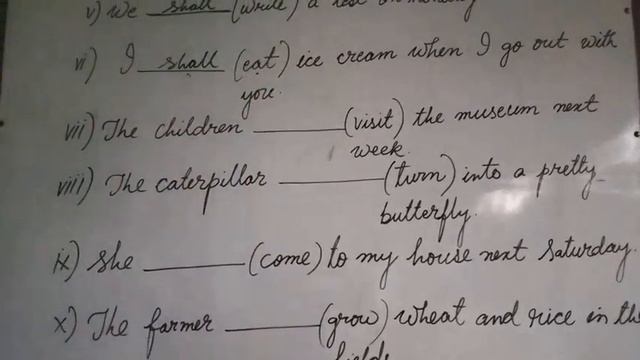 v) We shall (write) a test on Monday
vi) I shall (eat) ice cream when I go out with
you.
vii) The children ______ (visit) the museum next
week.
viii) The caterpillar ______ (turn) into a pretty
butterfly.
ix) She ______ (come) to my house next Saturday.
x) The farmer ______ (grow) wheat and rice in the
fields